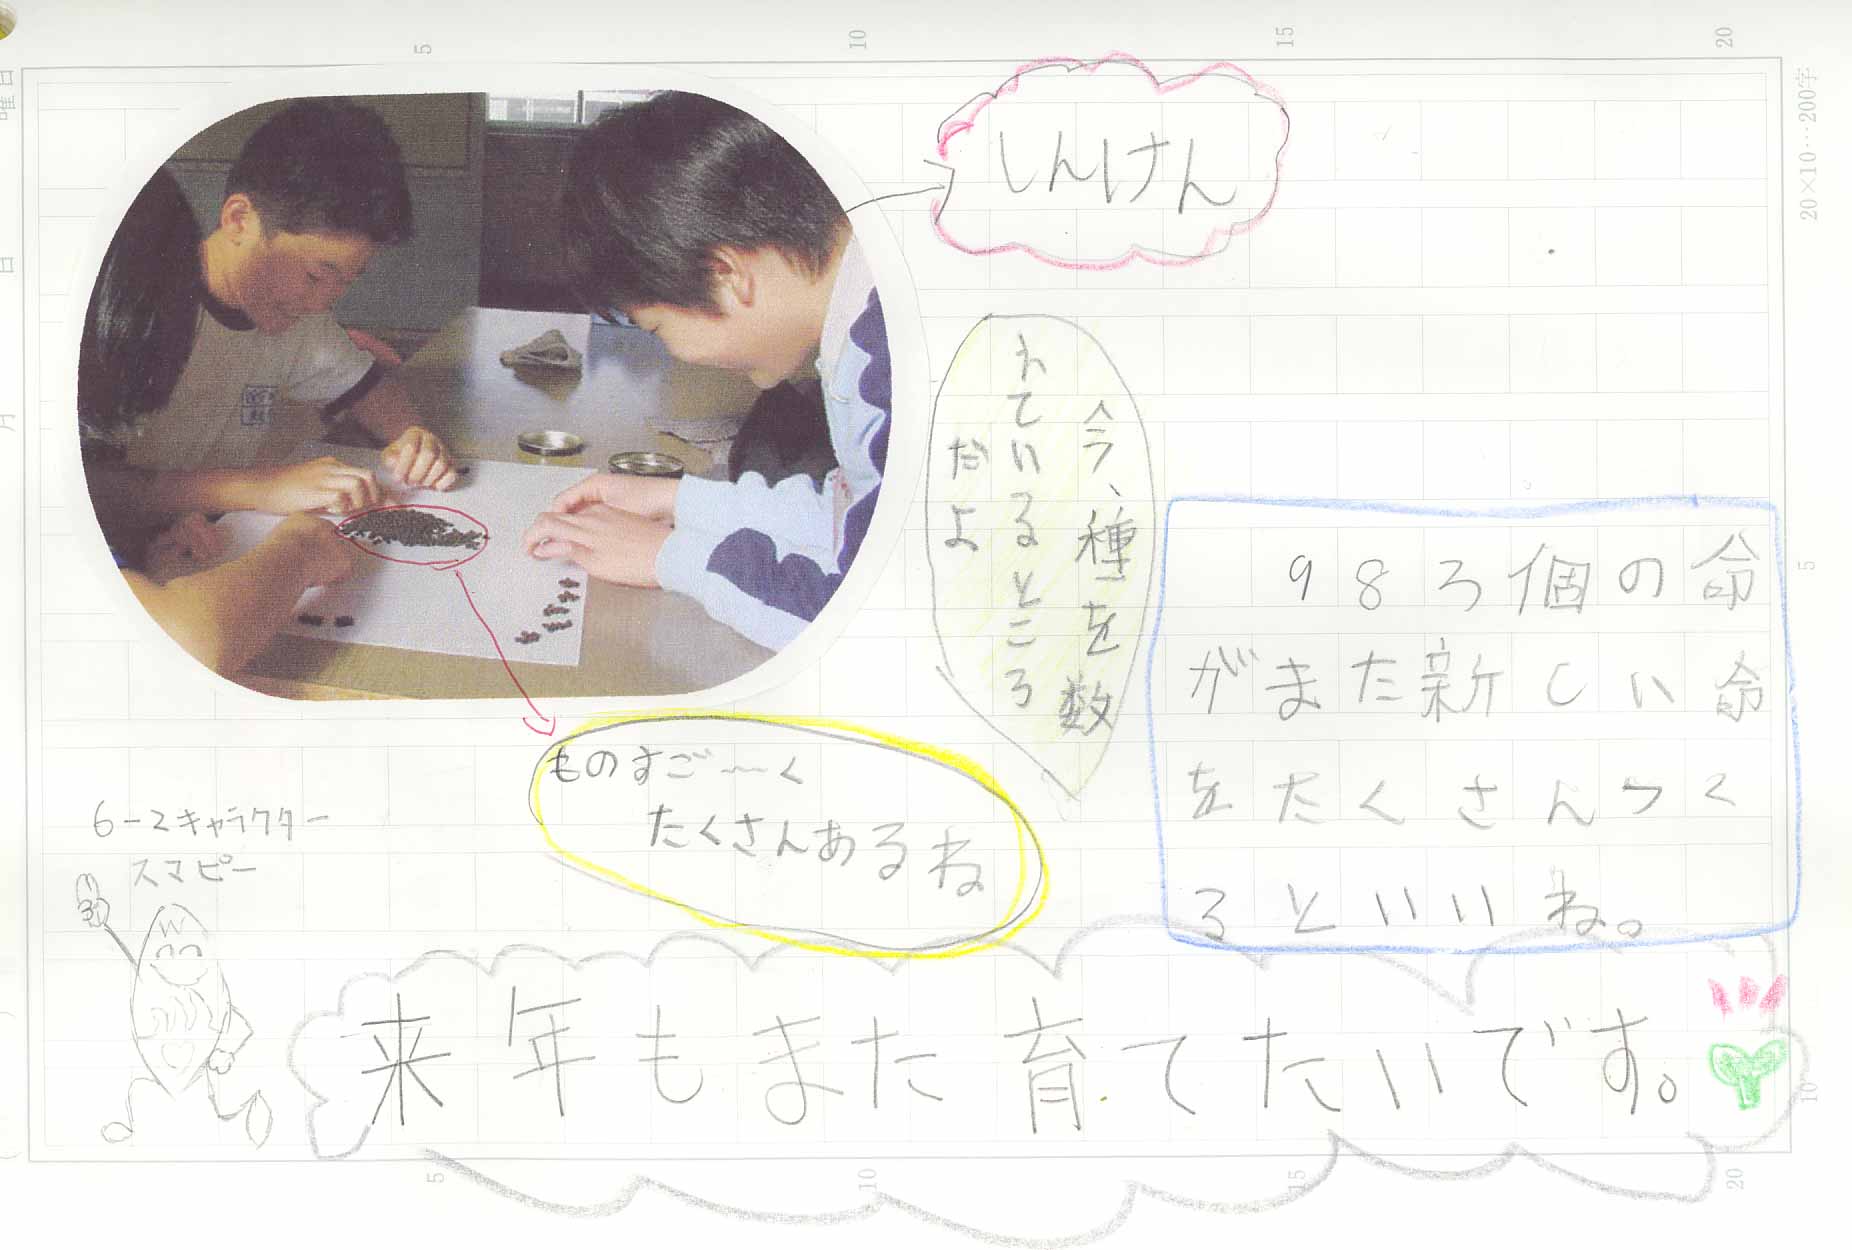 5
10
15
20
20×10…200字
曜日
日
月
しんけん
今、種を数
えているところ
だよ
983個の命
がまた新しい命
をたくさんつく
るといいね。
ものすご〜〜く
たくさんあるね
6-2キャラクター
スマピー
来年もまた育てたいです。
5
10
5
10
15
20